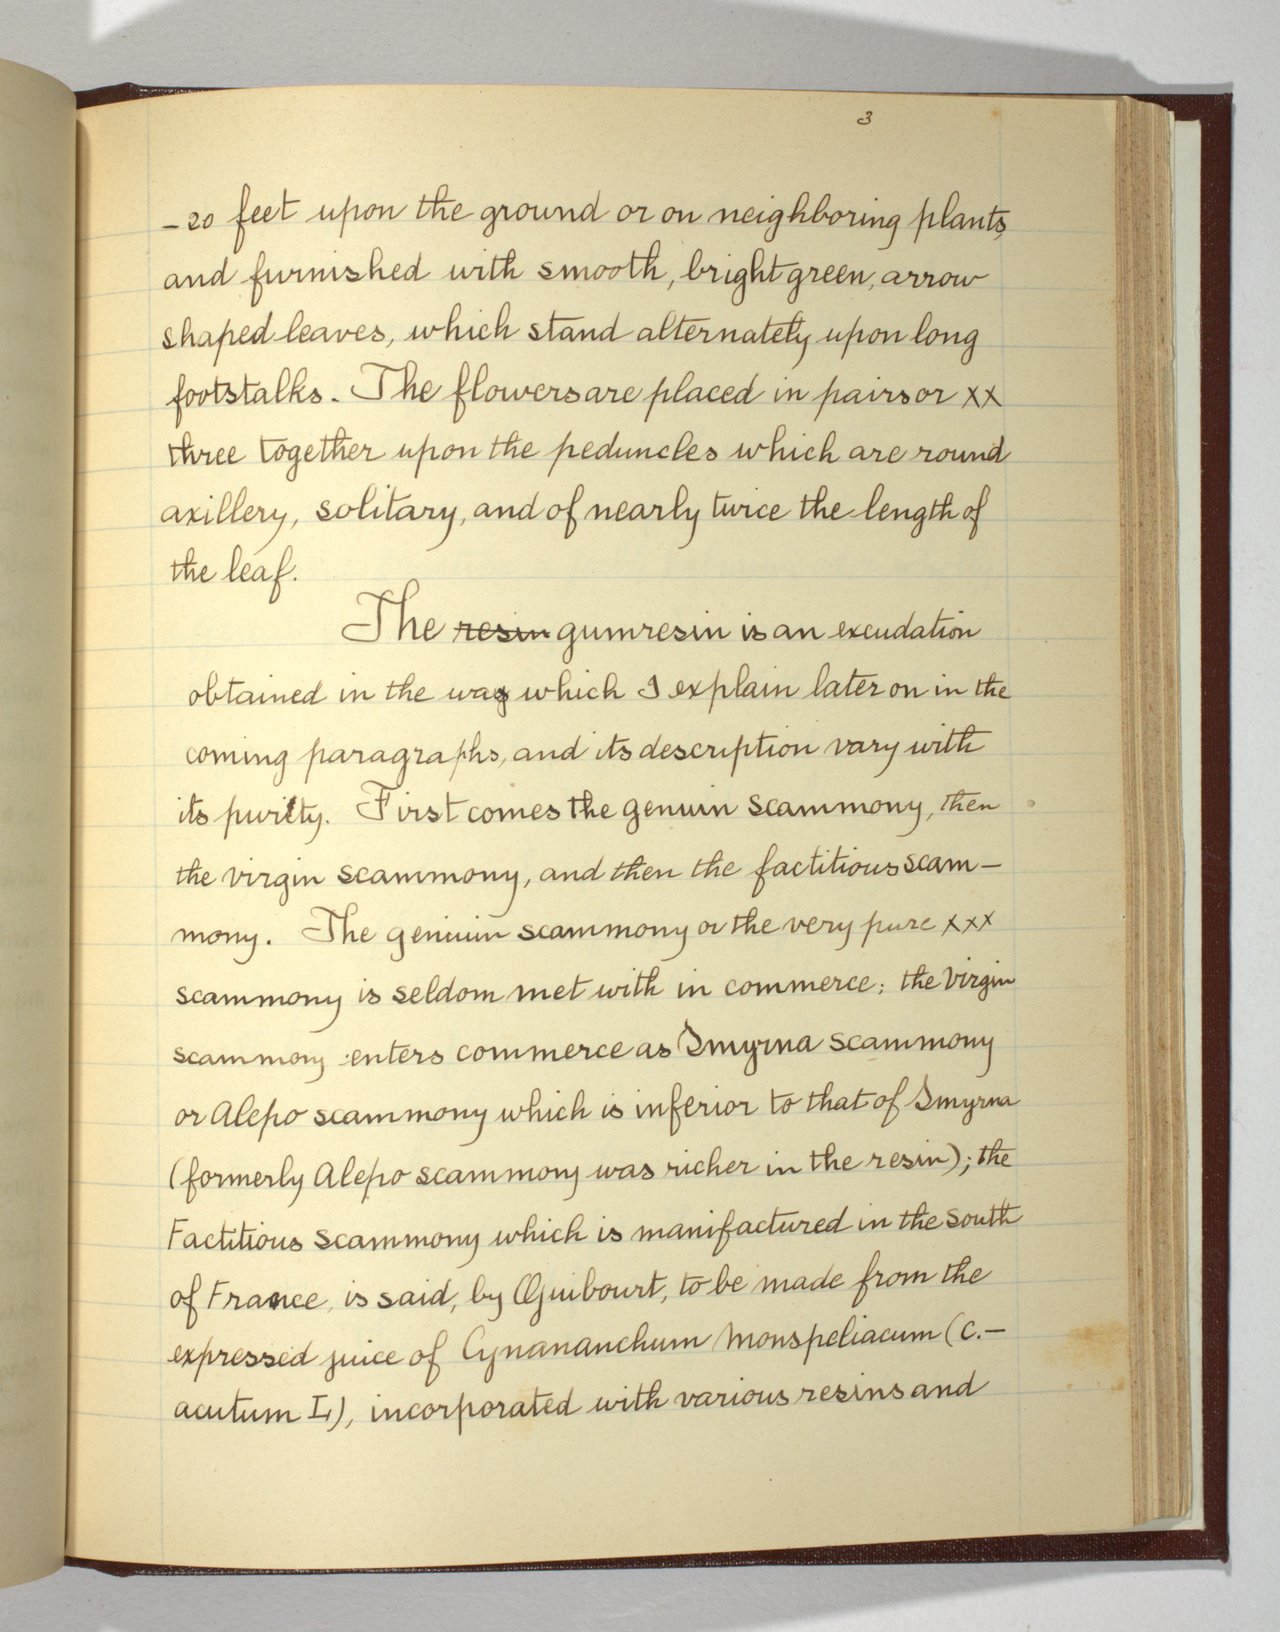 3
– 20 feet upon the ground or on neighboring plants,
and furnished with smooth, bright green, arrow
shaped leaves, which stand alternately upon long
footstalks. The flowers are placed in pairs or xx
three together upon the peduncles which are round
axillery, solitary, and of nearly twice the length of
the leaf.
The resin gumresin is an excudation
obtained in the way which I explain later on in the
coming paragraphs, and its description vary with
its purity. First comes the genuin scammony, then
the virgin scammony, and then the factitious scam–
mony. The genuin scammony or the very pure xxx
scammony is seldom met with in commerce; the virgin
scammony enters commerce as Smyrna scammony
or Alepo scammony which is inferior to that of Smyrna
(formerly Alepo scammony was richer in the resin); the
Factitious scammony which is manifactured in the south
of France, is said, by Guibourt, to be made from the
expressed juice of Cynananchum Monspeliacum (C.–
acutum L), incorporated with various resins and